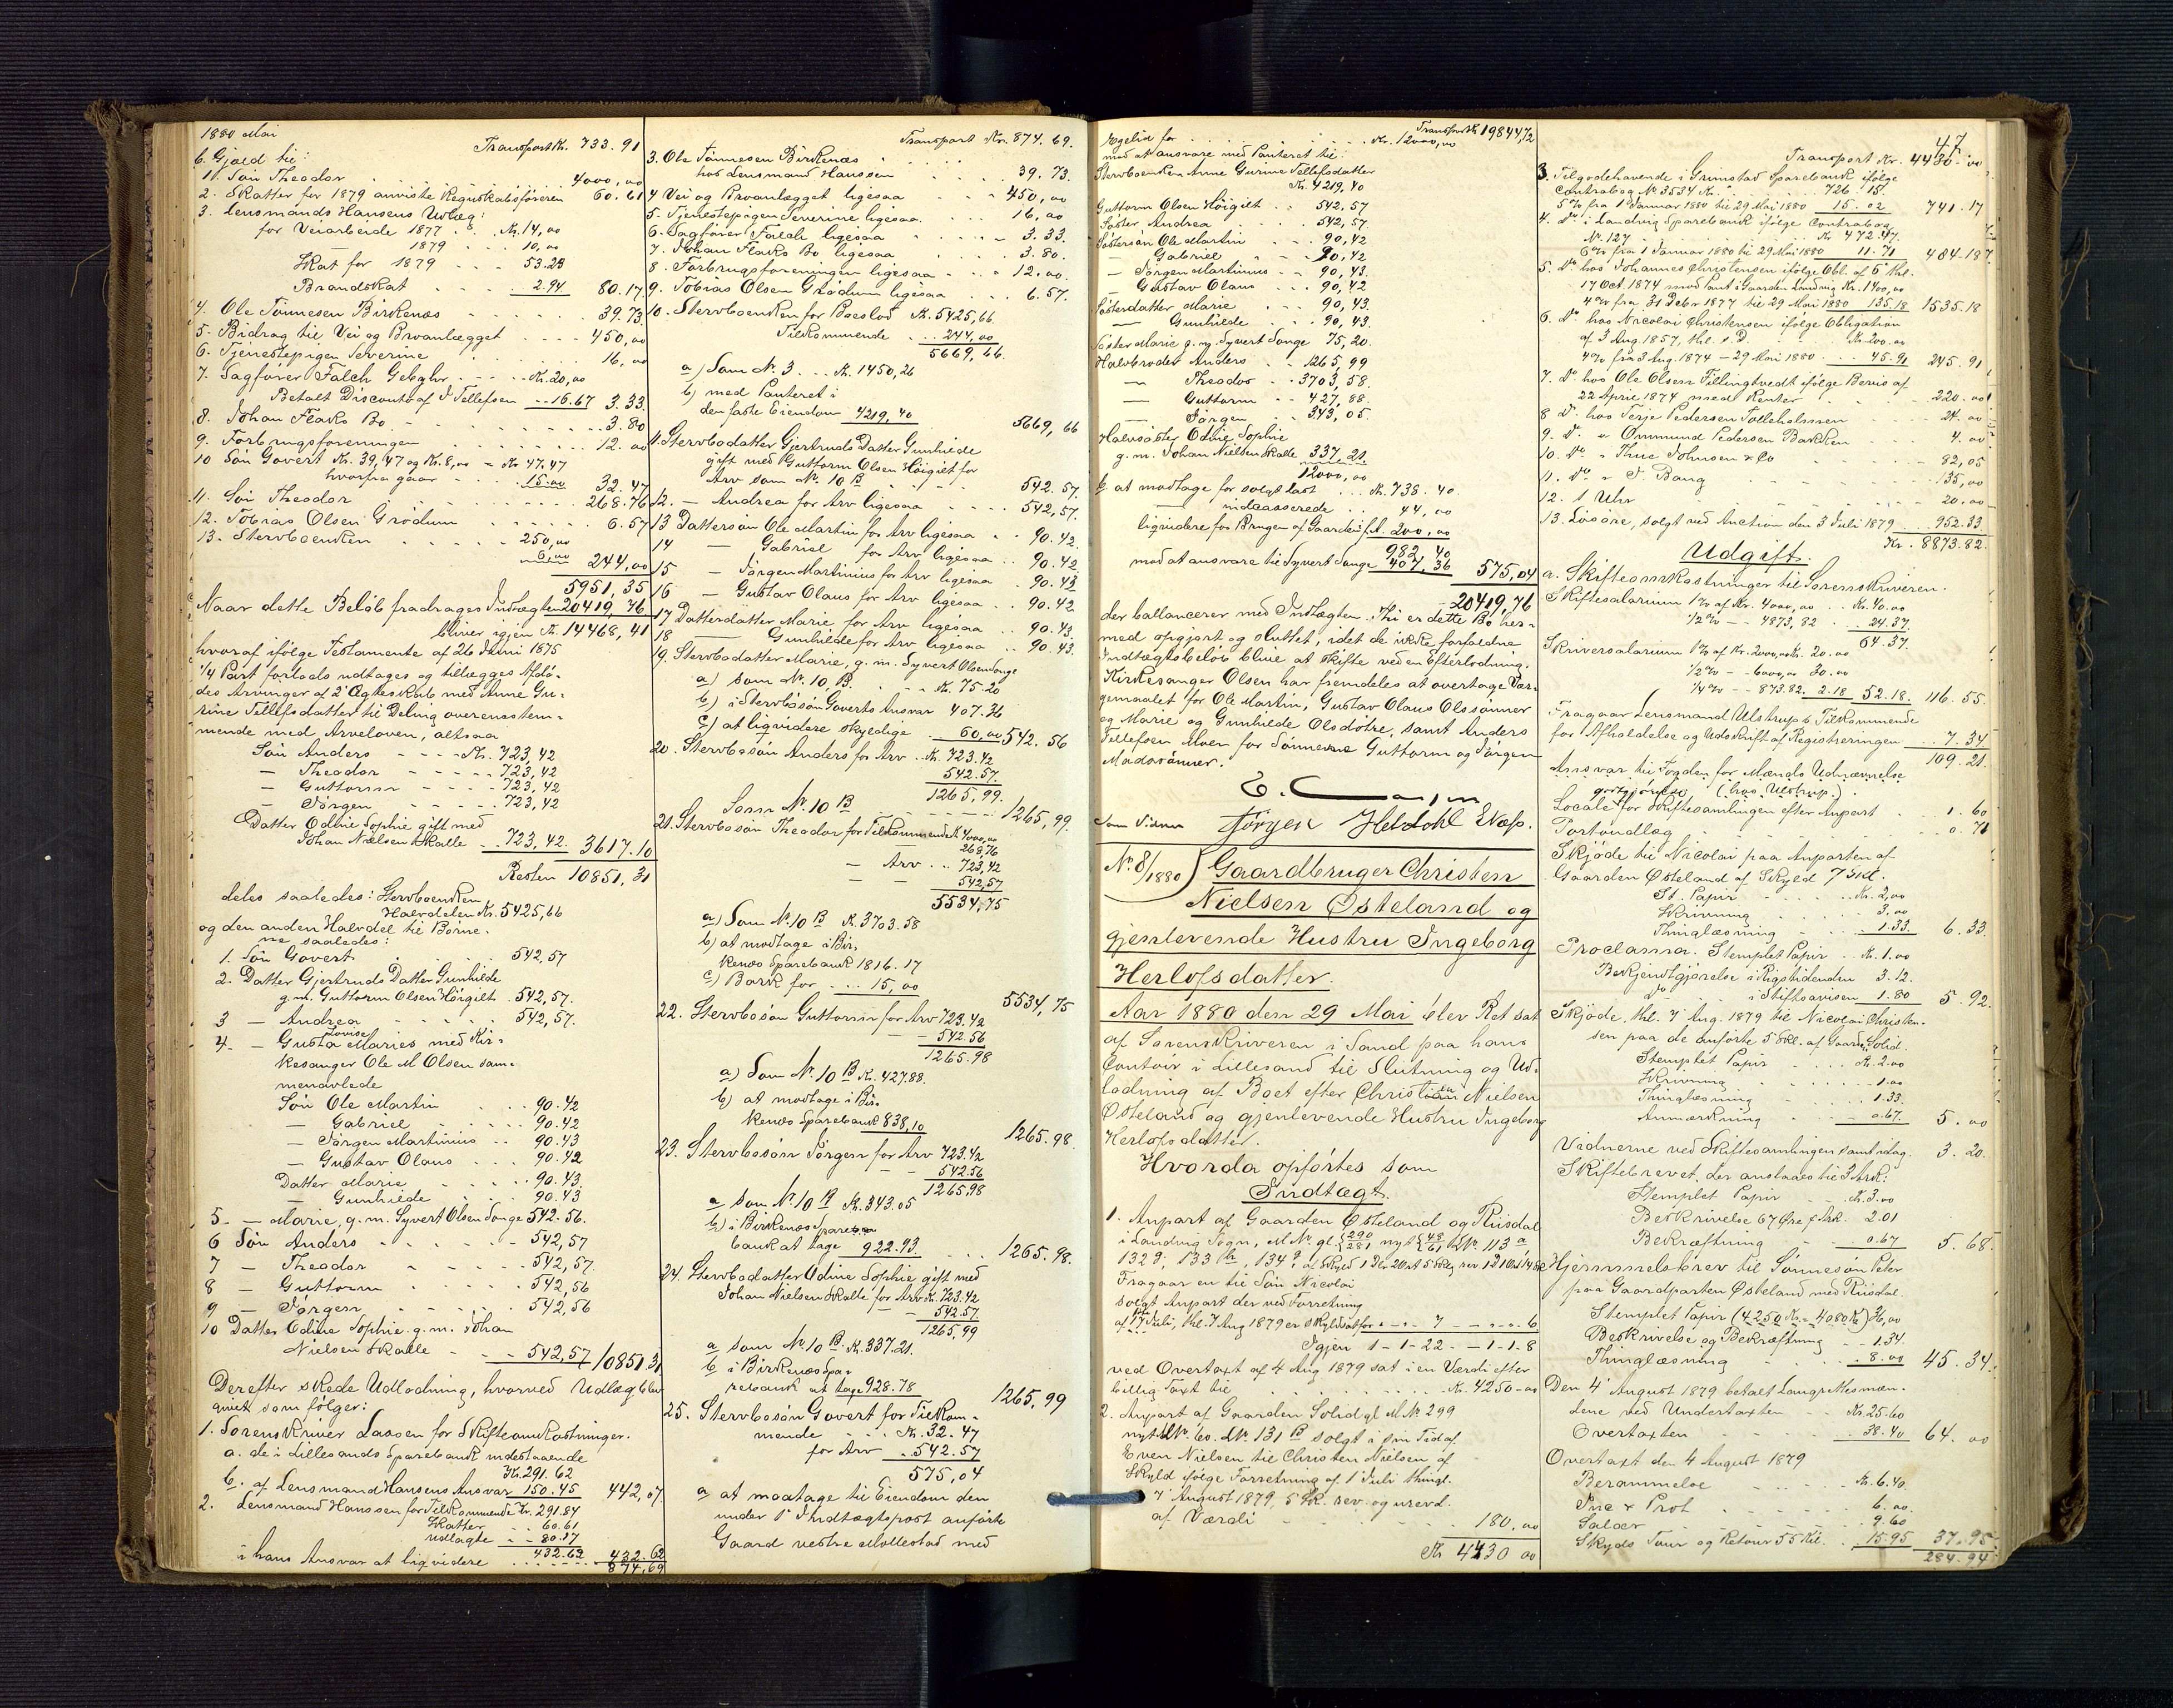 1880 Mai
Transport Kr. 733.91
b. Gjæld til:
1. Søn Theodor 4000,00
2. Skatter for 1879 anviste Regnskabsføreren 60.61
3. Lensmands Hansens Udlæg:
for Veiarbeide 1877 Kr. 14,00
— 1879 10,00
Skat for 1879 53.23
Brandskat 2.94 80.17
4. Ole Tønnesen Birkenæs 39.73
5. Bidrag til Vei og Broanlægget 450,00
6. Tjenestepigen Severine 16,00
7. Sagfører Falch Gebyhr Kr. 20,00
Betalt Disconto af T Tellefsen 16.67 3.33
8. Johan Flaks Bo 3.80
9. Forbrugsforeningen 12.00
10 Søn Govert Kr. 39,47 og Kr. 8,00 = Kr 47.47
hvorfra gaar 15.00 32.47
11. Søn Theodor 268.76
12. Tobias Olsen Grødum 6.57
13. Stervboenken 250,00
6,00 244,00
5951,35
Naar dette Beløb fradrages Indtægten 20419,76
bliver igjen Kr. 14468,41
hvoraf ifølge Testamente af 26 Juni 1875
1/4 Part forlods udtages og tillægges Afdø-
des Arvinger af 2' Ægteskab med Anne Gu-
rine Tellefsdatter til Deling overensstem-
mende med Arveloven, altsaa
Søn Anders Kr. 723,42
— Theodor 723,42
— Guttorm 723,42
— Jørgen 723,42
Datter Odine Sophie gift med
Johan Nielsen Skalle 723,42. 3617.10
Resten 10851,31
deles saaledes: Stervboenken
Halvdelen Kr. 5425,66
og den anden Halvdel til Børne-
ne saaledes:
1. Søn Govert 542,57
2. Datter Gjertruds Datter Gunhilde
g.m. Guttorm Olsen Høigilt 542,57.
3 — Andrea 542,57.
4. — Gusta Lovise Maries med Kir-
kesanger Ole M Olsen sam-
menavlede
Søn Ole Martin 90.42
— Gabriel 90.42
— Jørgen Martinius 90.43
— Gustav Olaus 90.42
Datter Marie 90.43.
— Gunhilde 90.43
5. — Marie, g.m. Syvert Olsen Songe 542.56.
6 Søn Anders 542,57
7 — Theodor 542,57.
8 — Guttorm 542,56
9 — Jørgen 542,56
10 Datter Odine Sophie g.m. Johan
Nielsen Skalle 542,57 10851.31
Derefter skede Udlodning, hvorved Udlæg blev
givet som følger:
1. Sorenskriver Laasen for Skifteomkostninger.
a. de i Lillesands Sparebank indestaaende
Kr. 291.62
b. af Lensmand Hansens Ansvar 150.45 442,07.
2. Lensmand Hanssen for Tilkommende Kr. 291.84
Skatter 60.61
udlagte 80.17
432.62 432.62
i hans Ansvar at liqvidere 874,69
Transport Kr. 874.69.
3. Ole Tønnesen Birkenæs
hos Lensmand Hanssen 39.73.
4 Vei og Broanlægget ligesaa 450,00
5. Tjenestepigen Severine ligesaa 16,00
6. Sagfører Falch ligesaa 3.33.
7. Johan Flaks Bo ligesaa 3.80.
8. Forbrugsforeningen ligesaa 12.00.
9. Tobias Olsen Grødum ligesaa 6.57.
10. Stervboenken for Boeslod Kr. 5425,66
Tilkommende 244,00
5669,66
a) Som No. 3 Kr. 1450,26
b) med Panteret i
den faste Eiendom 4219,40
5669,66
11. Stervbodatter Gjertruds Datter Gunhilde
gift med Guttorm Olsen Høigilt for
Arv som No. 10 B 542.57.
12. — Andrea for Arv ligesaa 542,57.
13 Dattersøn Ole Martin for Arv ligesaa 90.42.
14 — Gabriel for Arv ligesaa 90.42
15 — Jørgen Martinius for Arv ligesaa 90.43
16 — Gustav Olaus for Arv ligesaa 90.42
17 Datterdatter Marie for Arv ligesaa 90.43.
18 — Gunhilde for Arv ligesaa 90.43.
19. Stervbodatter Marie, g.m. Syvert Olsen Songe
a) som No. 10 B. Kr. 75-20
b) i Stervbosøn Goverts Ansvar 407.36
c) at liqvidere skyldige 60,00 542.56
20. Stervbosøn Anders for Arv Kr. 723.42
542.57.
1265,99.
Som No. 10 B 1265,99.
21. Stervbosøn Theodor for Tilkommende Kr. 4000,00
268.76
— Arv 723,42
— — 542,57
5534,75
a) Som No. 10 B Kr. 3703.58
b) at modtage i Bir-
kenæs Sparebank 1816.17
c) Bark for 15,00
5534,75
22. Stervbosøn Guttorm for Arv 723.42
542.56
1265.98
a) Som No. 10 B Kr. 427.88.
b) at modtage i Bir-
kenæs Sparebank 838,10
1265.98
23. Stervbosøn Jørgen for Arv 723.42
542.56
1265,98
a Som No. 10 B Kr. 343.05
b) i Birkenæs Spare-
bank at tage 922.93 1265.98.
24. Stervbodatter Odine Sophie gift med
Johan Nielsen Skalle for Arv Kr. 723.42
542.57.
1265,99
a som No. 10 B. Kr. 337.21.
b i Birkenæs Spa-
rebank at tage 928.78
1265,99
25. Stervbosøn Govert for Tilkom-
mende Kr. 32.47
for Arv 542.57
575,04
a at modtage til Eiendom den
under 1' Indtægtspost anførte
Gaard vestre Mollestad med
Transport Kr. 19844,72
Kr. 12000,00
med at ansvare med Panteret til:
Stervboenken Anne Gurine Tellefsdatter
Kr. 4219,40
Guttorm Olsen Høigilt 542.57
Søster Andrea 542,57.
Søstersøn Ole Martin 90,42
— Gabriel 90,42
— Jørgen Martinius 90,43.
— Gustav Olaus 90,42
Søsterdatter Marie 90,43.
— Gunhilde 90,43.
Søster Marie g.m. Syvert Songe 75,20.
Halvbroder Anders 1265,99
— Theodor 3703,58.
— Guttorm 427,88.
— Jørgen 343,05.
Halvsøster Odine Sophie
g.m. Johan Nielsen Skalle 337,21.
12000,00
b at modtage for solgt Last Kr. 738.40
— indcasserede 44,00
liqvidere for Brugen af Gaarden 200,00
982,40
med at ansvare til Syvert Songe 407,36 575,04
20419,76
der ballancerer med Indtægten. Thi er dette Bo her-
med opgjort og sluttet, idet de ikke forfaldne
Indtægtsbeløb blive at skifte ved en Efterlodning.
Kirkesanger Olsen har fremdeles at overtage Vær-
gemaalet for Ole Martin, Gustav Olaus Olssønner
og Marie og Gunhilde Olsdøtre, samt Anders
Tellefsen Moen for Sønnerne Guttorm og Jørgen
Madssønner.
Som Vidner Jørgen Heldahl
No. 8/1880) Gaardbruger Christen
Nielsen Østeland og
gjenlevende Hustru Ingeborg
Herlofsdatter.
Aar 1880 den 29 Mai blev Ret sat
af Sorenskriveren i Sand paa hans
Contoir i Lillesand til Slutning og Ud-
lodning af Boet efter Christen Nielsen
Østeland og gjenlevende Hustru Ingeborg
Herlofsdatter.
Hvorda opførtes som
Indtægt.
1. Anpart af Gaarden Østeland og Risdal
i Landvig Sogn, M No. gl. {290 281 nyt {48 61 LNo. 113 a
132 g, 133 b, 134
Fragaar en til Søn Nicolai
solgt Anpart der ved Forretning
af 17 Juli, thl. 7 Aug 1879 er skyldsat for — 7 — 6
Igjen 1-1-22 — 1-1-8
ved Overtaxt af 4 Aug 1879 sat i en Værdi efter
billig Taxt til Kr. 4250-00
2. Anpart af Gaarden Solid gl M No 299
nyt No. 60. LNo. 131 B solgt i sin Tid af
Even Nielsen til Christen Nielsen af
Skyld ifølge Forretning af 1 Juli thingl.
7' August 1879, 5 Sk. rev. og urevd.
af Værdi 180,00
Kr 4430 00
47.
Transport Kr. 4430.00
3. Tilgodehavende i Grimstad Sparebank ifølge
Contrabog No. 3534 Kr. 726 15.
5% fra 1 Januar 1880 til 29 Mai 1880 15.02 741.17
4. Do i Landvig Sparebank ifølge Contrabog
No. 127 Kr 472.47.
6% fra 1 Januar 1880 til 29 Mai 1880 11.71 484.18
5. Do hos Johannes Christensen ifølge Obl. af 6 thl.
17 Oct. 1874 mod Pant i Gaarden Landvig Kr. 1400,00
4% fra 31 Decbr 1877 til 29 Mai 1880 135.18 1535.18
6. Do hos Nicolai Christensen ifølge Obligation
af 3 Aug. 1857, thl. s.D. Kr. 200.00
4% fra 3 Aug. 1874 - 29 Mai 1880 45-91 245.91
7. Do hos Ole Olsen Fillingtvedt ifølge Bevis af
22 April 1874 med Renter 220.00
8 Do. hos Terje Pedersen Tolleholmen 24.00
9. Do. " Ommund Pedersen Barken 4.00
10. Do " Thue Johnsen & Co 82,05
11. Do " J. Bang 135,00
12. 1 Uhr 20,00
13. Løsøre, solgt ved Auction den 3 Juli 1879 952.33
Kr. 8873.82.
Udgift.
a. Skifteomkostninger til Sorenskriveren.
Skiftesalarium 1% af Kr. 4000,00 Kr. 40.00
1/2% — 4873,82 24.37.
64.37.
Skriversalarium 1% af Kr. 2000,00 Kr. 20.00
1/2% — 6000,00 30.00
1/4% — 873.82 2.18 52.18. 116.55.
Fragaar Lensmand Ulstrup's Tilkommende
for Afholdelse og Udskrift af Registreringen 7.34
109.21.
Ansvar til Fogden for Mænds Udnævnelse
godtgjørelse (hos Ulstrup)
Locale for Skiftesamlingen efter Anpart 1.60
Portoudlæg 0.71
Skjøde til Nicolai paa Anparten af
Gaarden Østeland af Skyld 7 Skl.
St. Papir Kr. 2,00
Skrivning 3.00
Thinglæsning 1.33. 6.33.
Proclama. Stemplet Papir Kr. 1.00
Bekjendtgjørelse i Rigstidenden 3.12.
Do i Stiftsavisen 1.80 5.92.
Skjøde, thl. 7 Aug. 1879 til Nicolai Christen-
sen paa de anførte 5 Skl. af Gaarden Solid.
Stemplet Papir Kr. 2.00
Skrivning 1.00
Thinglæsning 1.33
Anmærkning 0.67. 5.00
Vidnerne ved Skiftesamlingen samt idag 3.20.
Skiftebrevet, der anslaaes til 3 Ark:
Stemplet Papir Kr. 3.00
Beskrivelse 67 Øre f Ark. 2.01
Bekræftning 0.67 5.68.
Hjemmelsbrev til Sønnesøn Peter
paa Gaardparten Østeland med Risdal.
Stemplet Papir (4250 Kr. = 4080 Kr) 36,00
Beskrivelse og Bekræftning 1.34
Thinglæsning 8.00 45.34.
Den 4' August 1879 betalt Laugrettesmæn-
dene ved Undertaxten Kr. 25.60
Overtaxten 38.40 64.00
Overtaxt den 4 August 1879
Berammelse Kr. 6.40.
Pne & Prot 6.00
Salær 9.60
Skyds Tour og Retour 55 Kil. 15.95 37.95.
284.94